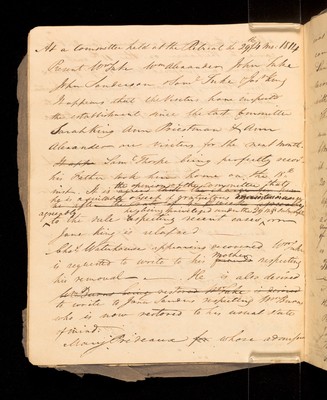 At a Committee held at the Retreat the 29th/4 mo. 1814
Present Wm Tuke Wm Alexander John Tuke
John Sanderson & Saml Tuke Jos. King
It appears that the Visitors have inspected
the establishment since the last Committee
Sarah King Ann Priestman & Ann
Alexander are Visitors for the next month.
Saml Thorp being perfectly recovd
his Father took him home on the 15th
inst. It is the opinion of the Committee that
he is a suitable object of gratuitous
agreeably to the rule respecting recent cases
Jane King is relapsed
Chas Waterhouse appearing recovered Wm Tuke
is requested to write to his mother respecting
his removal — He is also desired
to write to Jane Sanders respecting Wm Burne
who is now restored to his usual state
of mind.
Mary Prideaux for whose admission